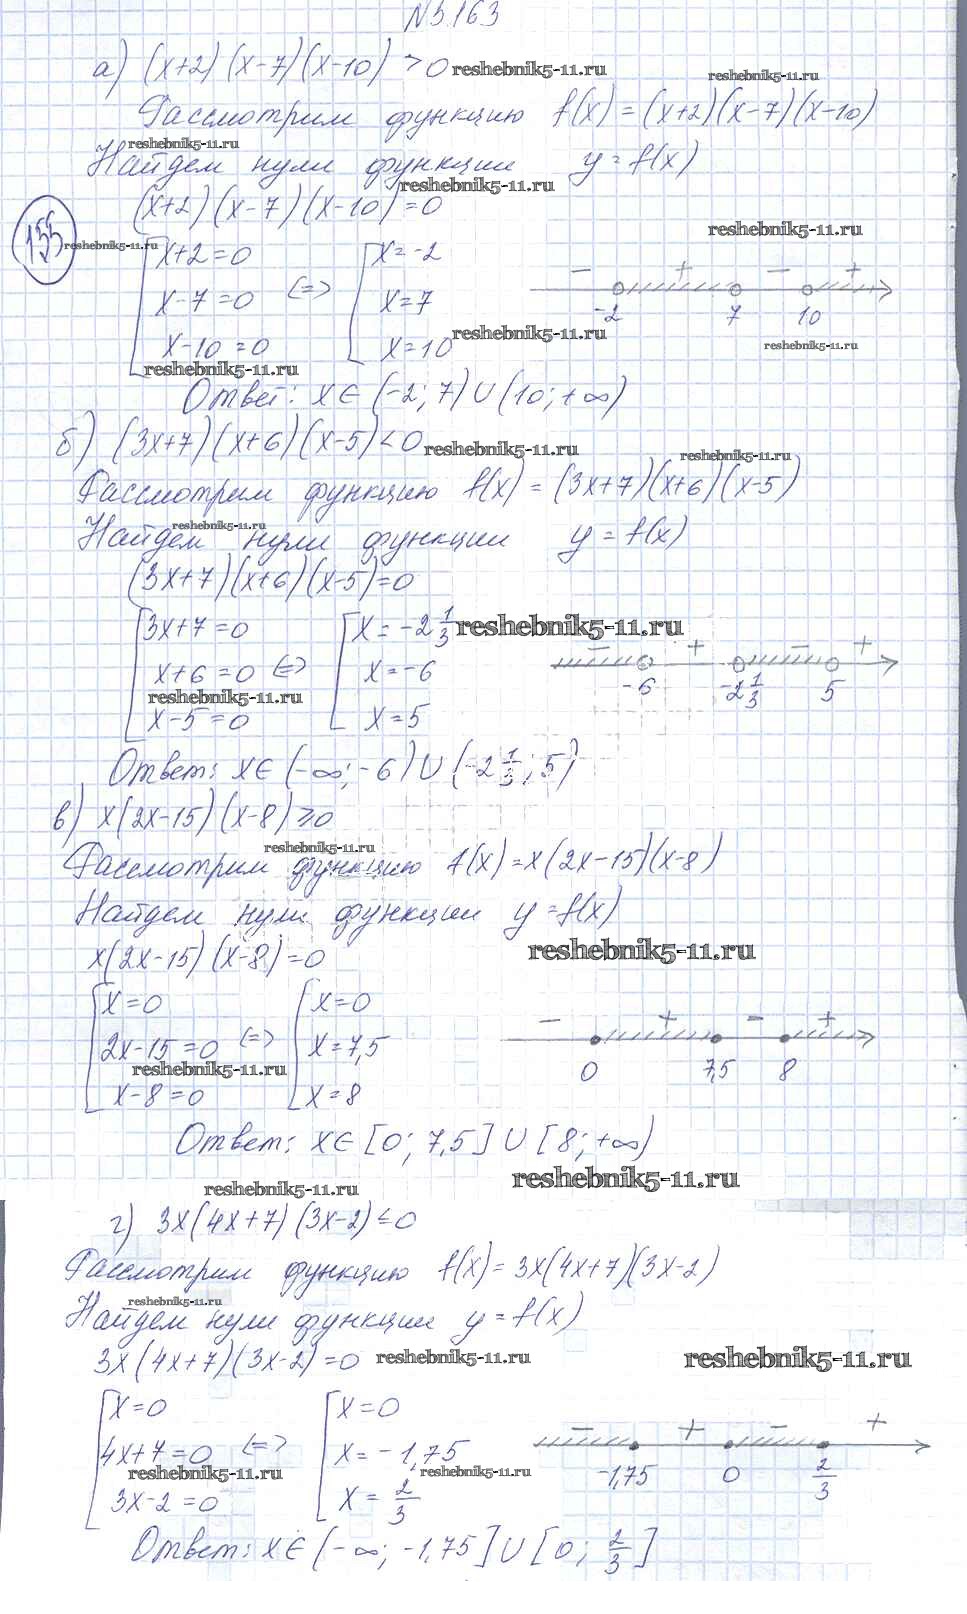 №5.163
а) (x+2)(x-7)(x-10)>0 reshebnik5-11.ru reshebnik5-11.ru
Рассмотрим функцию f(x)=(x+2)(x-7)(x-10)
reshebnik5-11.ru
Найдем нули функции y=f(x)
reshebnik5-11.ru
(x+2)(x-7)(x-10)=0
155 reshebnik5-11.ru reshebnik5-11.ru
x+2=0 x=-2
x-7=0 <=> x=7
x-10=0 x=10
- + - +
-2 7 10
reshebnik5-11.ru
reshebnik5-11.ru
reshebnik5-11.ru
Ответ: x∈(-2; 7)∪(10; +∞)
б) (3x+7)(x+6)(x-5)<0 reshebnik5-11.ru reshebnik5-11.ru
Рассмотрим функцию f(x)=(3x+7)(x+6)(x-5)
reshebnik5-11.ru
Найдем нули функции y=f(x)
(3x+7)(x+6)(x-5)=0
3x+7=0 x=-2 1/3 reshebnik5-11.ru
x+6=0 <=> x=-6
reshebnik5-11.ru
x-5=0 x=5
- + - +
-6 -2 1/3 5
Ответ: x∈(-∞; -6)∪(-2 1/3; 5)
в) x(2x-15)(x-8)≥0
reshebnik5-11.ru
Рассмотрим функцию f(x)=x(2x-15)(x-8)
Найдем нули функции y=f(x)
reshebnik5-11.ru
x(2x-15)(x-8)=0
x=0 x=0
2x-15=0 <=> x=7,5
reshebnik5-11.ru
x-8=0 x=8
- + - +
0 7,5 8
Ответ: x∈[0; 7,5]∪[8; +∞)
reshebnik5-11.ru reshebnik5-11.ru
г) 3x(4x+7)(3x-2)≤0
Рассмотрим функцию f(x)=3x(4x+7)(3x-2)
reshebnik5-11.ru
Найдем нули функции y=f(x)
3x(4x+7)(3x-2)=0 reshebnik5-11.ru reshebnik5-11.ru
x=0 x=0
4x+7=0 <=> x=-1,75
reshebnik5-11.ru reshebnik5-11.ru
3x-2=0 x=2/3
- + - +
-1,75 0 2/3
Ответ: x∈(-∞; -1,75]∪[0; 2/3]